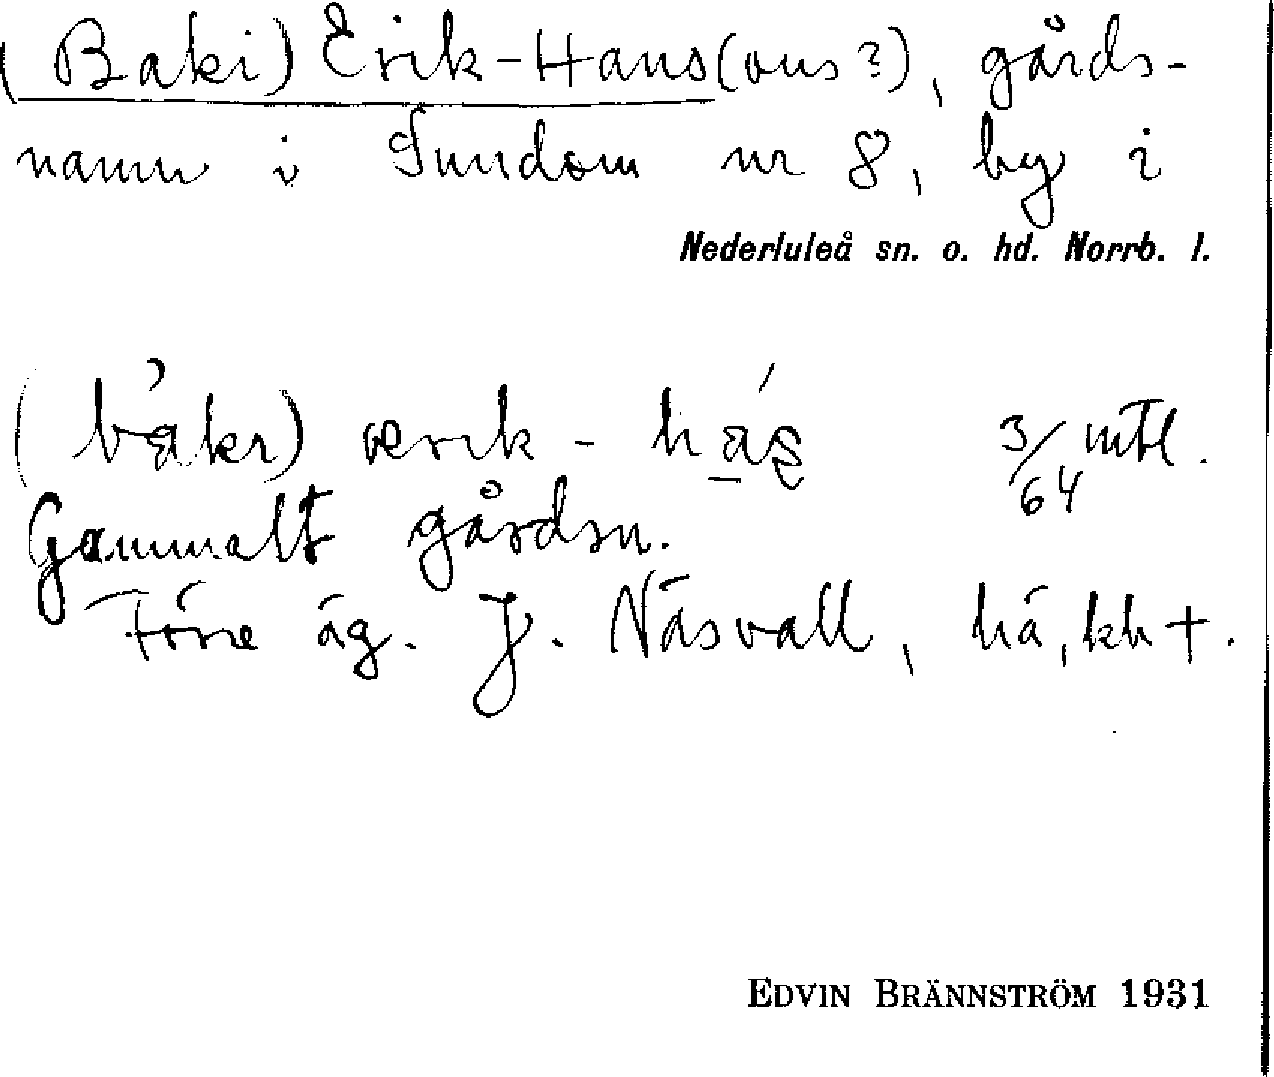 (Baki) Erik-Hans(ons?), gårds-
namn i Sundom nr 8, by i
Nederluleå sn. o. hd. Norrb. l.
erik - 3/64 mtl.
Gammalt gårdsn.
Förre äg. J. Näsvall, hä, kh +.
EDVIN BRÄNNSTRÖM 1931